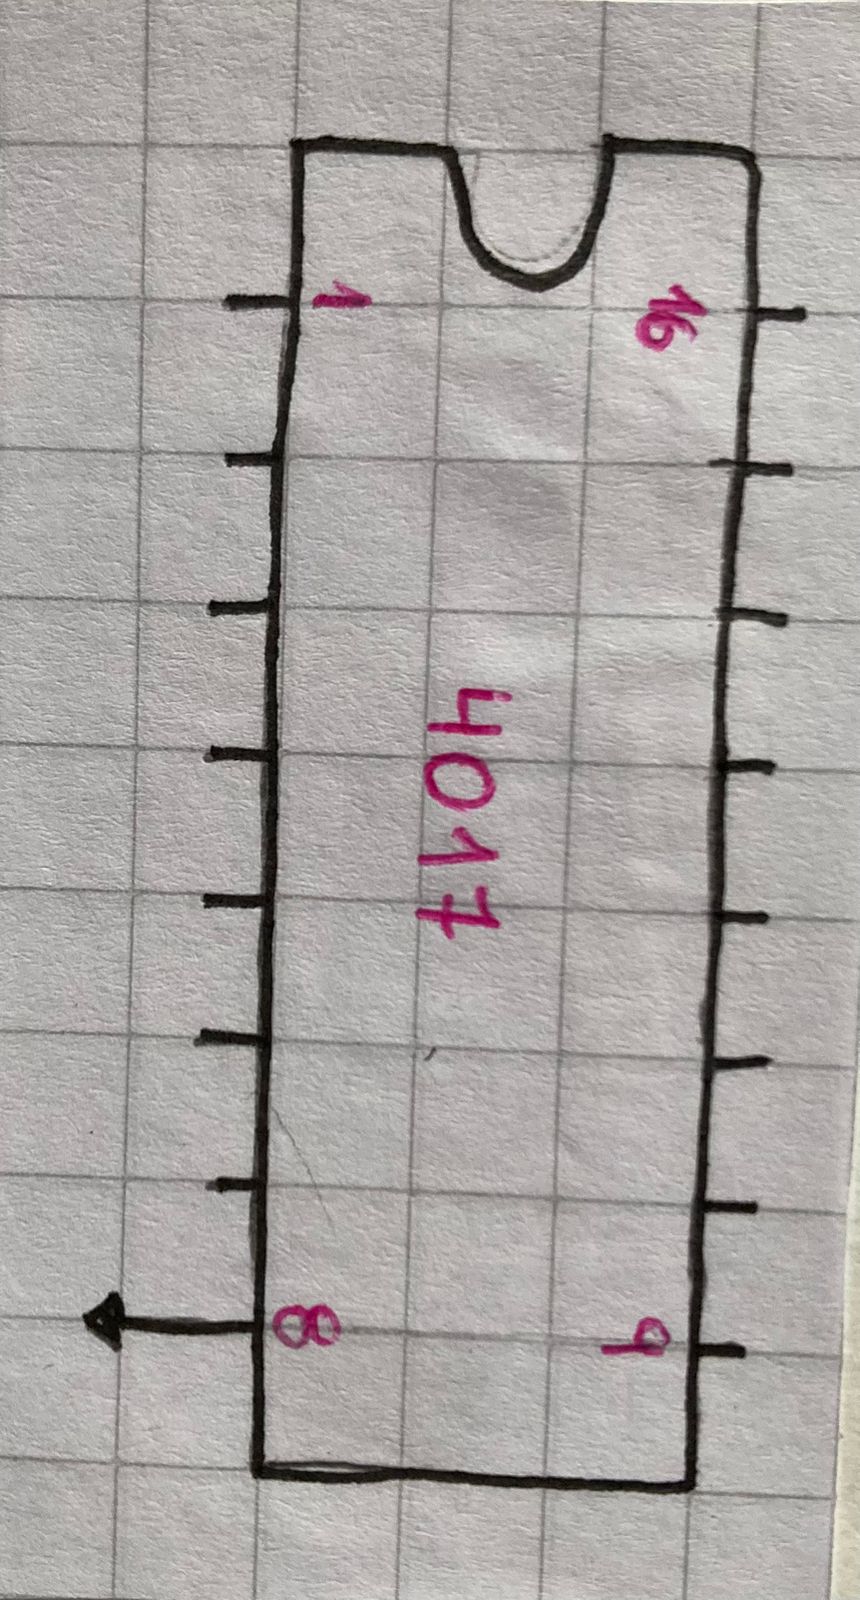 16 9
4017
1 8